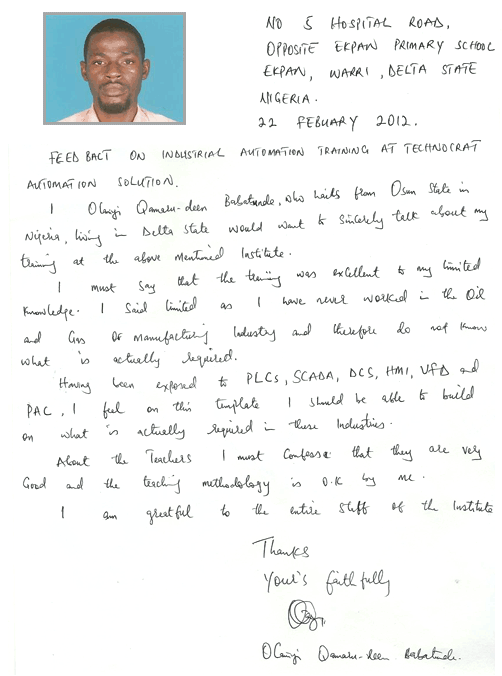 NO 5 HOSPITAL ROAD,
OPPOSITE EKPAN PRIMARY SCHOOL
EKPAN, WARRI, DELTA STATE
NIGERIA.
22 FEBUARY 2012.
FEED BACT ON INDUSTRIAL AUTOMATION TRAINING AT TECHNOCRAT
AUTOMATION SOLUTION.
I Olaniyi Qamaru-deen Babatunde, who hails from Osun State in
Nigeria, living in Delta State would want to sincerely talk about my
training at the above mentioned Institute.
I must say that the training was excellent to my limited
knowledge. I said limited as I have never worked in the Oil
and Gas Or manufacturing Industry and therefore do not know
what is actually required.
Having been exposed to PLCs, SCADA, DCS, HMI, VFD and
PAC, I feel on this template I should be able to build
on what is actually required in these Industries.
About the Teachers I must Confess that they are very
Good and the teaching methodology is O.K by me.
I am greatful to the entire Staff of the Institute
Thanks
Your's faithfully
Olaniyi Qamaru-deen Babatunde.